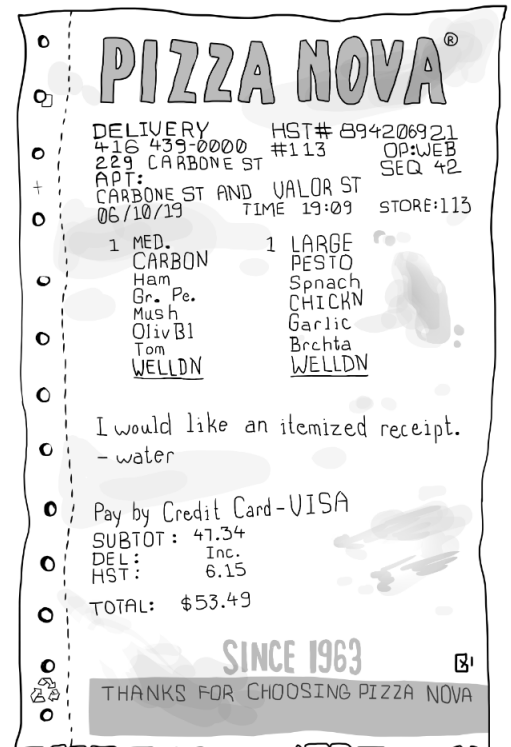 PIZZA NOVA®
DELIVERY HST# 894206921
416 439-0000 #113 OP:WEB
229 CARBONE ST SEQ 42
APT:
CARBONE ST AND VALOR ST
06/10/19 TIME 19:09 STORE:113
1 MED.
CARBON
Ham
Gr. Pe.
Mush
OlivBl
Tom
WELLDN
1 LARGE
PESTO
Spnach
CHICKN
Garlic
Brchta
WELLDN
I would like an itemized receipt.
- water
Pay by Credit Card-VISA
SUBTOT: 47.34
DEL: Inc.
HST: 6.15
TOTAL: $53.49
SINCE 1963
THANKS FOR CHOOSING PIZZA NOVA